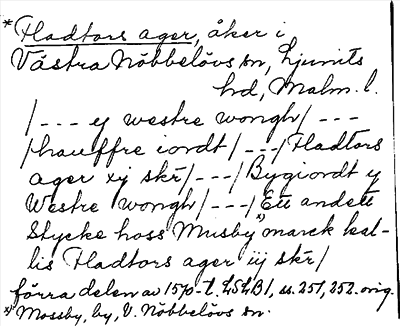 *Fladtors ager, åker i
Västra Nöbbelövs sn, Ljunits
hd, Malm. l.
/--- ej westre wongh/---
/hauffre iordt/---/Fladtors
ager xij skr/---/Bygiordt ij
Westre wongh/---/Ett andett
Stycke hoss Musby x) marck kal-
lis Fladtors ager iij skr/
förra delen av 1570-t. LSLB1, ss. 251, 252. orig.
x) Mossby, by, V. Nöbbelövs sn.